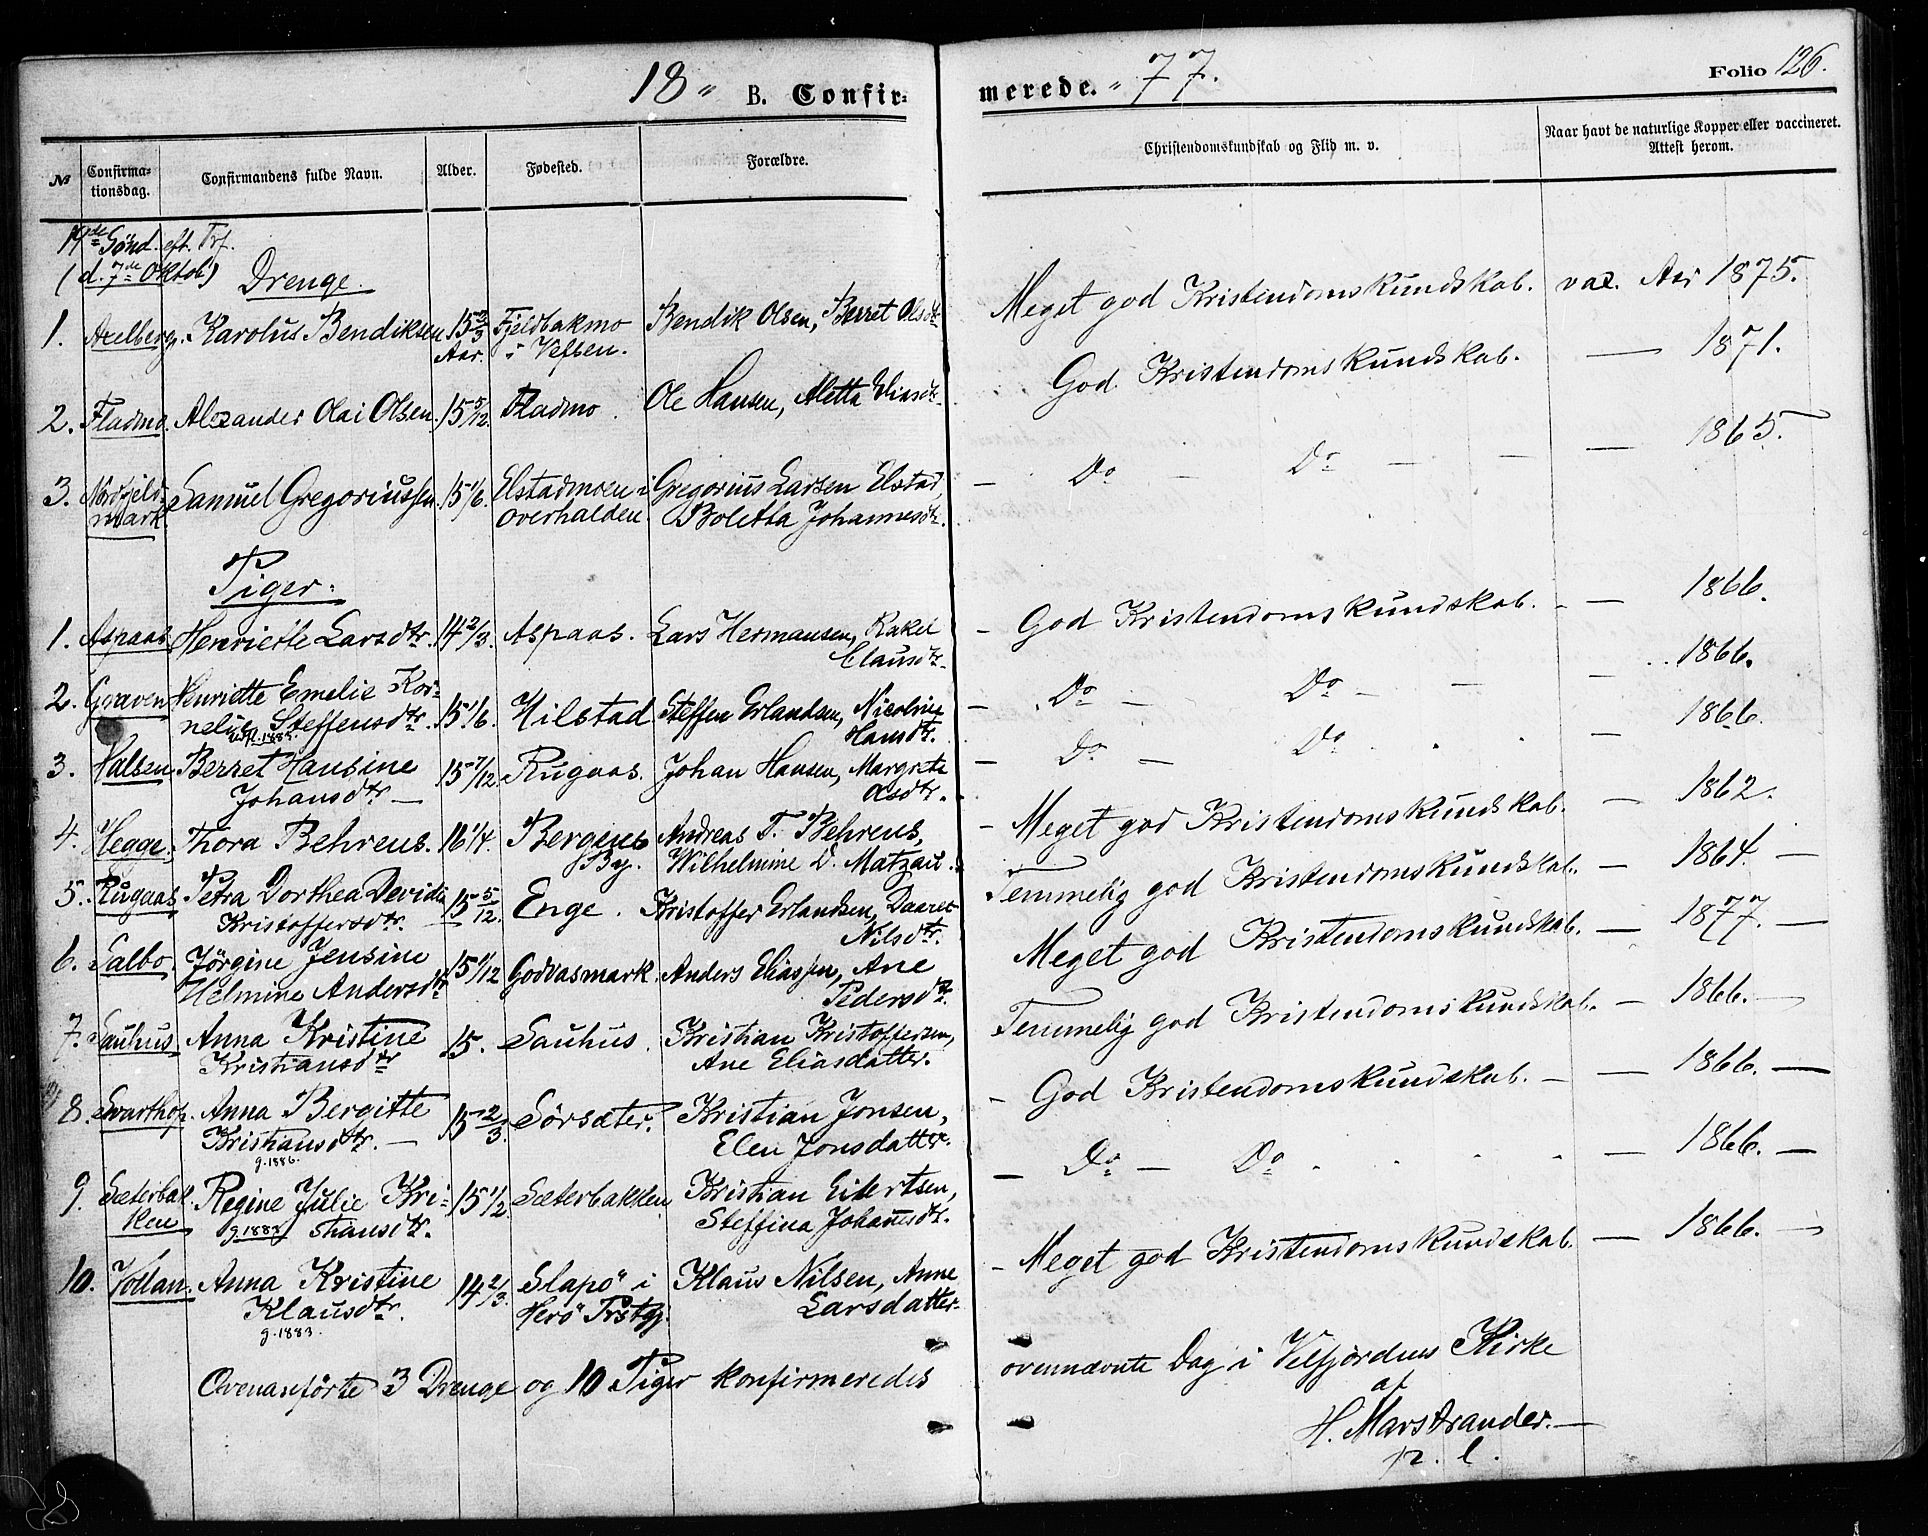 18 " B. Confirmerede. " 77. Folio 126.
No Confirmationsdag. Confirmandens fulde Navn. Alder. Fødested. Forældre. Christendomskundskab og Flid m. v. Naar havt de naturlige Kopper eller vaccineret. Attest herom.
19de Sönd. eft. Trf.
(d. 7de Oktob.) Drenge.
1. Axelberg. Karolus Bendiksen 15 2/3 Aar. Fjeldbakmo i Vefsen. Bendik Olsen, Berret Olsdtr. Meget god Kristendomskundskab. vac. Aar 1875.
2. Fladmo. Alexander Olai Olsen. 15 5/12. Fladmo. Ole Hansen, Aletta Eliasdtr. God Kristendomskundskab. — 1871.
3. Nordfjeldmark. Samuel Gregoriussen 15 1/6. Elstadmoen i Overhalden. Gregorius Larsen Elstad, Boletta Johannesdtr. — Do — Do — — 1865.
Piger.
1. Aspaas Henriette Larsdtr. 14 2/3. Aspaas. Lars Hermansen, Rakel Clausdtr. — God Kristendomskundskab. — 1866.
2. Graven Henriette Emelie Kornelia Steffensdtr. 15 1/6. Hilstad Steffen Erlandsen, Nicoline Hansdtr. — Do — Do — — 1866.
3. Halsen Berret Hansine Johansdtr. — 15 7/12. Rugaas. Johan Hansen, Margrete Olsdtr. — Do — Do — 1866.
4. Hegge. Thora Behrens. 16 1/4. Bergens By. Andreas T. Behrens, Wilhelmine D. Matzau. — Meget god Kristendomskundskab. — 1862.
5. Rugaas Petra Dorthea Davidia Kristoffersdtr. — 15 5/12. Enge. Kristoffer Erlandsen, Daaret Nilsdtr. Temmelig god Kristendomskundskab. — 1864. —
6. Salbo. Jörgine Jensine Helmine Andersdtr 15 1/12 Godvasmark. Anders Eliassen, Ane Pedersdtr. Meget god Kristendomskundskab. — 1877. —
7. Sauhus. Anna Kristine Kristiansdtr 15. Sauhus. Kristian Kristoffersen, Ane Eliasdatter. Temmelig god Kristendomskundskab. — 1866. —
8. Svarthop. Anna Bergitte Kristiansdtr. — g. 1886. 15 2/3. Sörsæter. Kristian Jonsen, Elen Jonsdatter. — God Kristendomskundskab. — — 1866. —
9. Sæterbakken Regine Julie Kristiansdtr. g. 1888 15 1/2. Sæterbakken Kristian Eilertsen, Steffina Johansdtr. — Do — Do — 1866. —
10. Vollan. Anna Kristine Klausdtr. g. 1883. 14 2/3. Slapö i Herö Prstgj. Klaus Nilsen, Anne Larsdatter. — Meget god Kristendomskundskab. — 1866. —
Ovenanförte 3 Drenge og 10 Piger konfirmeredes ovennævnte Dag i Velfjordens Kirke
af
H. Marstrander. —
p. l.